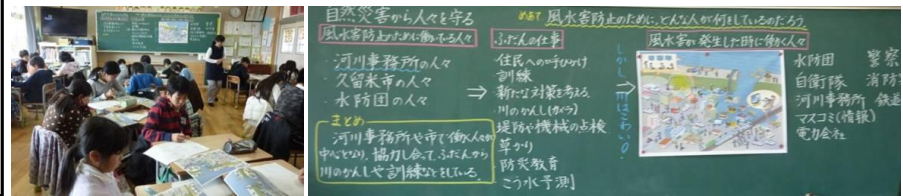 自然災害から人々を守る
めあて 風水害防止のために、どんな人が何をしているのだろう。
風水害防止のために働いている人々
・河川事務所の人々
・久留米市の人々
・水防団の人々
まとめ
河川事務所や市で働く人々が
中心となり、協力し合って、ふだんから
川のかんしや訓練などをしている。
ふだんの仕事
・住民への呼びかけ
・訓練
・新たな対策を考える
・川のかんし(カメラ)
・堤防や機械の点検
・草かり
・防災教育
・こう水予測
しかし
風水害が発生した時に働く人々
水防団 警察
自衛隊 消防
河川事務所 鉄道
マスコミ(情報)
電力会社